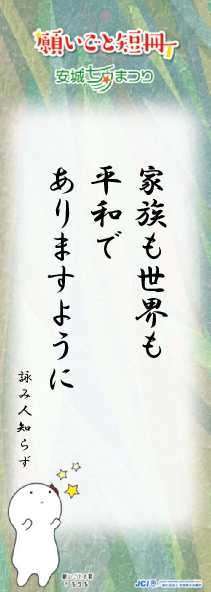 願いごと短冊
安城七夕まつり
家族も世界も
平和で
ありますように
詠み人知らず
JCI